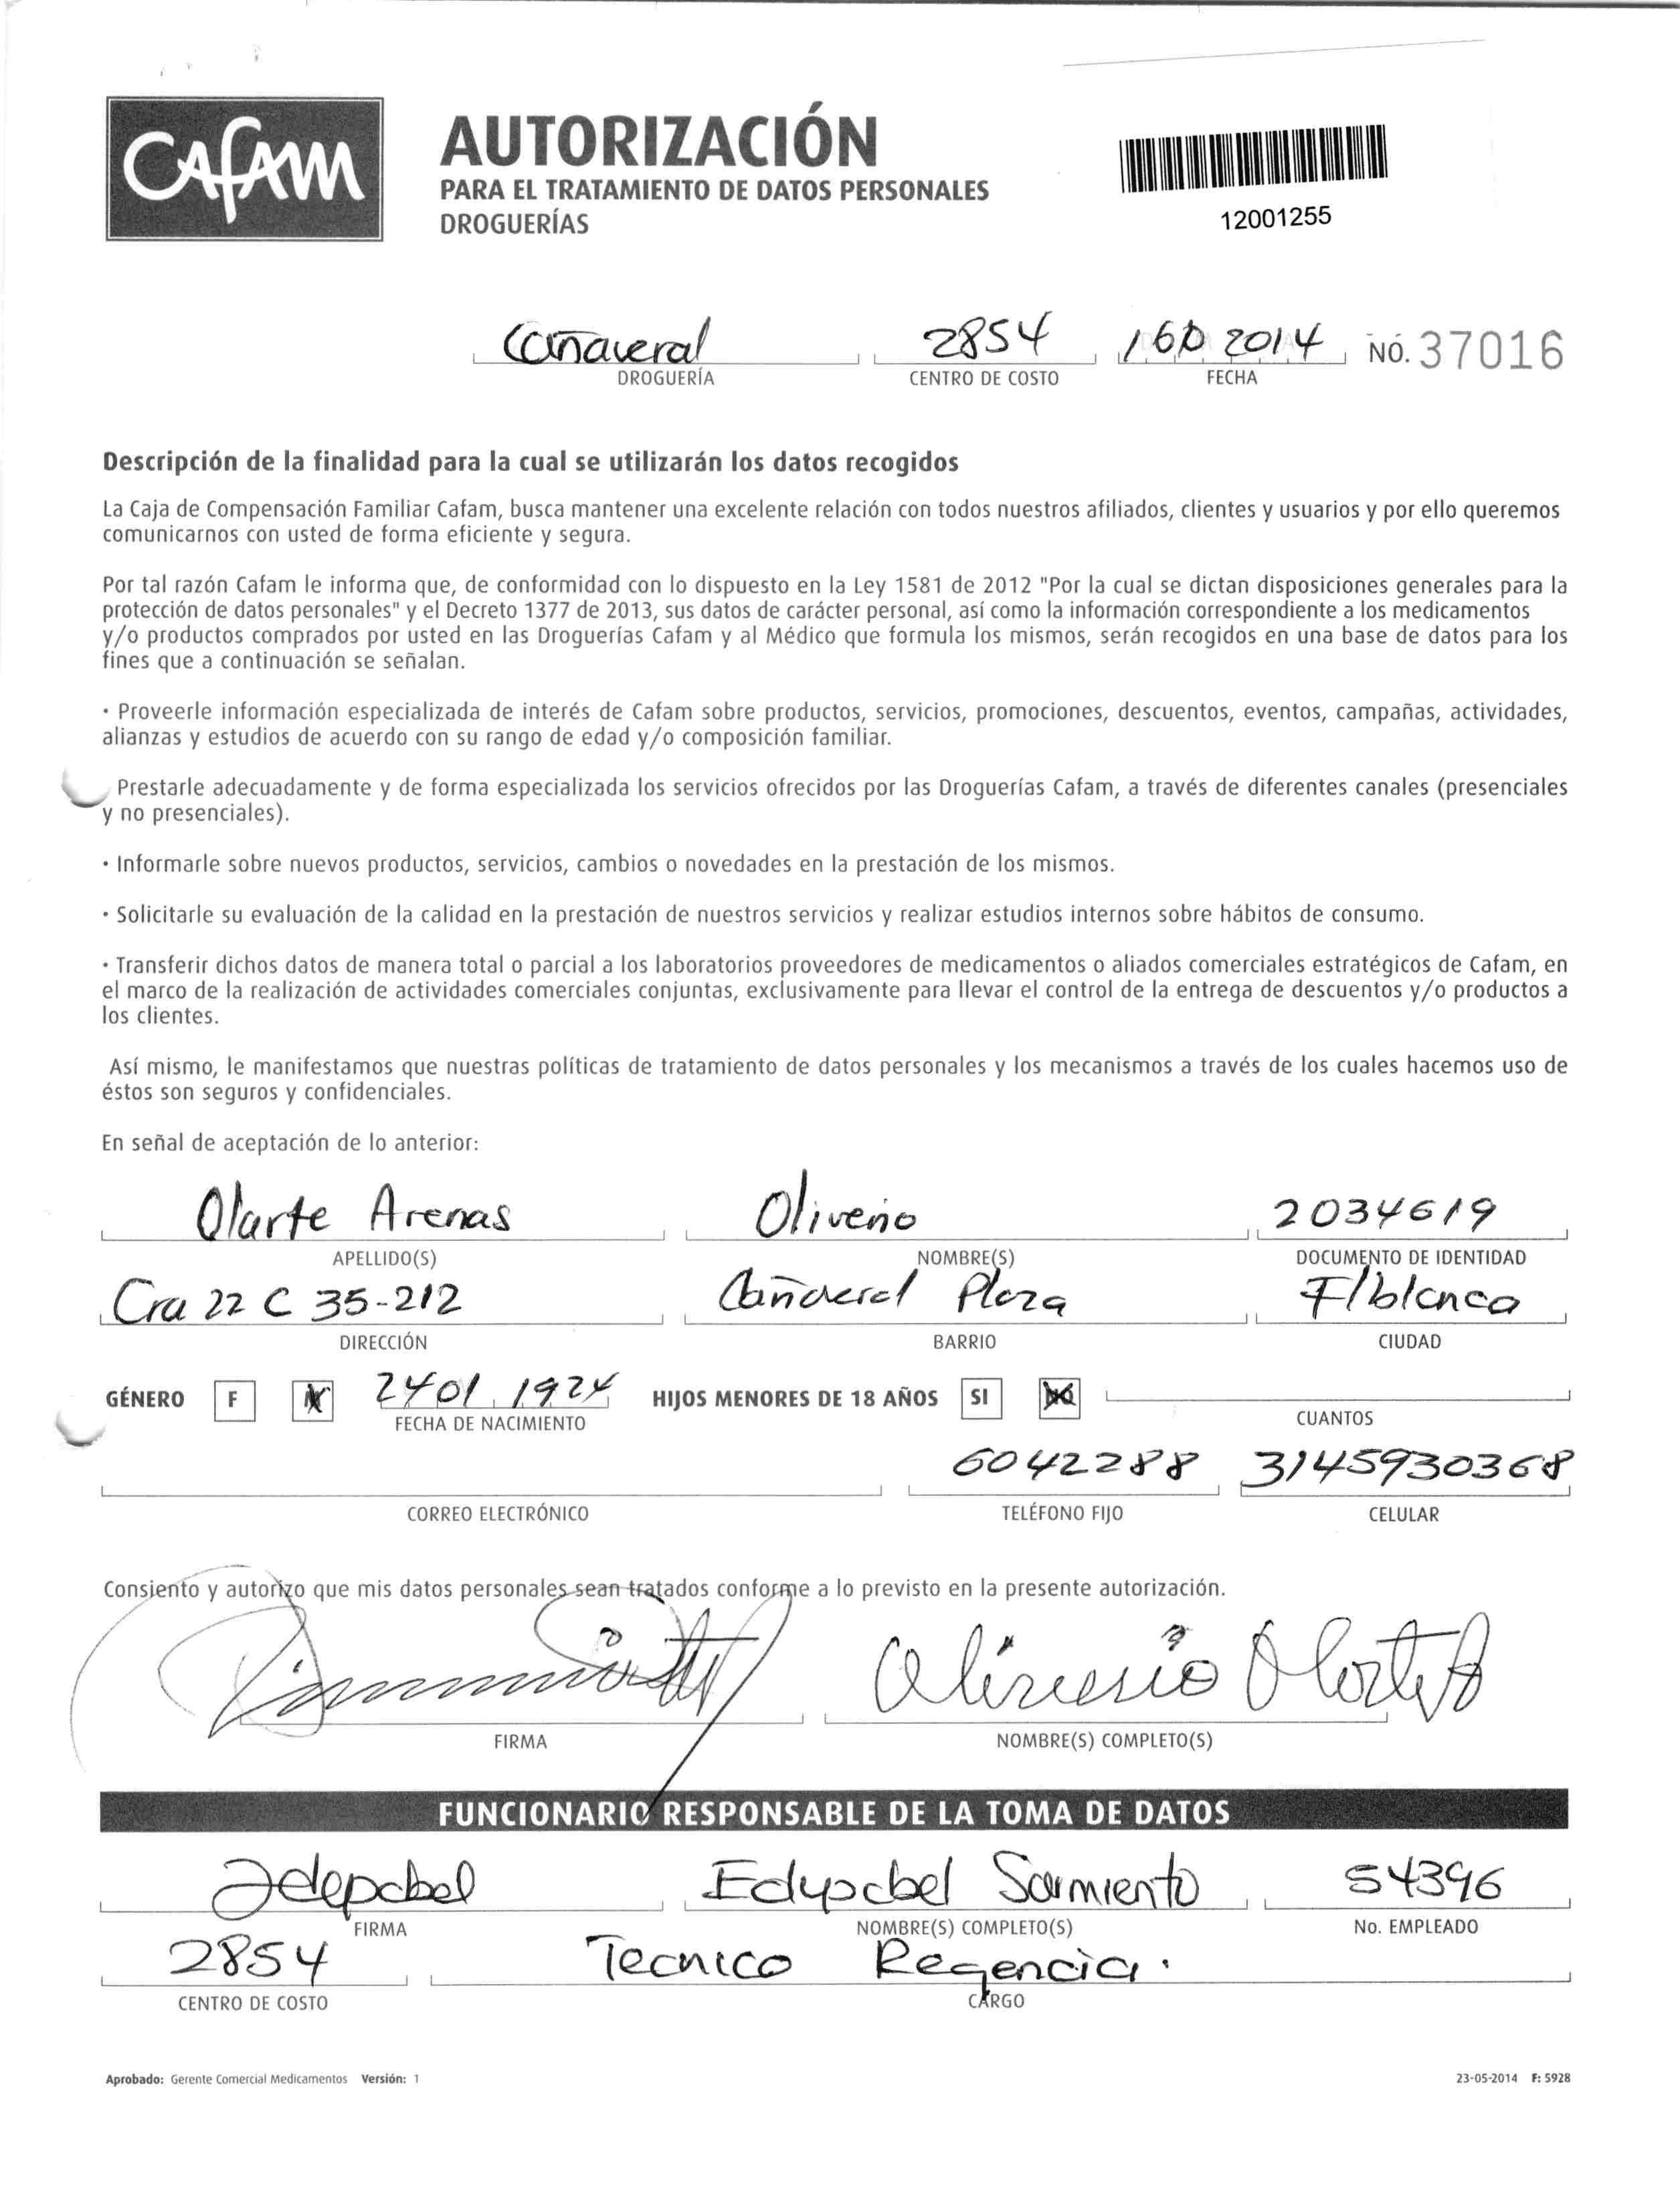 CAFAM
AUTORIZACIÓN
PARA EL TRATAMIENTO DE DATOS PERSONALES
DROGUERÍAS
12001255
Cañaveral 2854 2014 NO. 37016
DROGUERÍA CENTRO DE COSTO FECHA
Descripción de la finalidad para la cual se utilizarán los datos recogidos
La Caja de Compensación Familiar Cafam, busca mantener una excelente relación con todos nuestros afiliados, clientes y usuarios y por ello queremos
comunicarnos con usted de forma eficiente y segura.
Por tal razón Cafam le informa que, de conformidad con lo dispuesto en la Ley 1581 de 2012 "Por la cual se dictan disposiciones generales para la
protección de datos personales" y el Decreto 1377 de 2013, sus datos de carácter personal, así como la información correspondiente a los medicamentos
y/o productos comprados por usted en las Droguerías Cafam y al Médico que formula los mismos, serán recogidos en una base de datos para los
fines que a continuación se señalan.
• Proveerle información especializada de interés de Cafam sobre productos, servicios, promociones, descuentos, eventos, campañas, actividades,
alianzas y estudios de acuerdo con su rango de edad y/o composición familiar.
Prestarle adecuadamente y de forma especializada los servicios ofrecidos por las Droguerías Cafam, a través de diferentes canales (presenciales
y no presenciales).
• Informarle sobre nuevos productos, servicios, cambios o novedades en la prestación de los mismos.
• Solicitarle su evaluación de la calidad en la prestación de nuestros servicios y realizar estudios internos sobre hábitos de consumo.
• Transferir dichos datos de manera total o parcial a los laboratorios proveedores de medicamentos o aliados comerciales estratégicos de Cafam, en
el marco de la realización de actividades comerciales conjuntas, exclusivamente para llevar el control de la entrega de descuentos y/o productos a
los clientes.
Así mismo, le manifestamos que nuestras políticas de tratamiento de datos personales y los mecanismos a través de los cuales hacemos uso de
éstos son seguros y confidenciales.
En señal de aceptación de lo anterior:
Olarte Arenas Oliverio 2034619
APELLIDO(S) NOMBRE(S) DOCUMENTO DE IDENTIDAD
Cra 22 C 35-212 Cañaveral Plaza F/blanca
DIRECCIÓN BARRIO CIUDAD
GÉNERO F M 2401 1924 HIJOS MENORES DE 18 AÑOS SI NO
FECHA DE NACIMIENTO CUANTOS
6042288 3145930368
CORREO ELECTRÓNICO TELÉFONO FIJO CELULAR
Consiento y autorizo que mis datos personales sean tratados conforme a lo previsto en la presente autorización.
Oliverio Olarte A
FIRMA NOMBRE(S) COMPLETO(S)
FUNCIONARIO RESPONSABLE DE LA TOMA DE DATOS
Edypabel Sarmiento 54396
FIRMA NOMBRE(S) COMPLETO(S) No. EMPLEADO
2854 Tecnico Regencia.
CENTRO DE COSTO CARGO
Aprobado: Gerente Comercial Medicamentos Versión: 1 23-05-2014 F: 5928